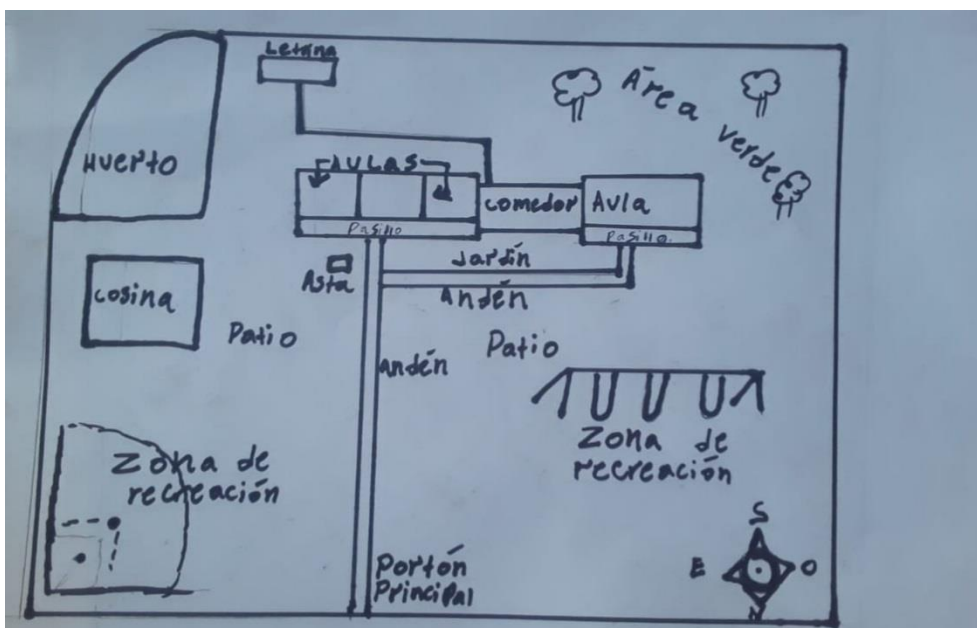 Letrina
Área
verde
Huerto
AULAS
comedor
Aula
Pasillo
Pasillo.
Jardín
Asta
Andén
cosina
Patio
Patio
Andén
Zona de
recreación
Zona de
recreación
S
E
O
N
Portón
Principal